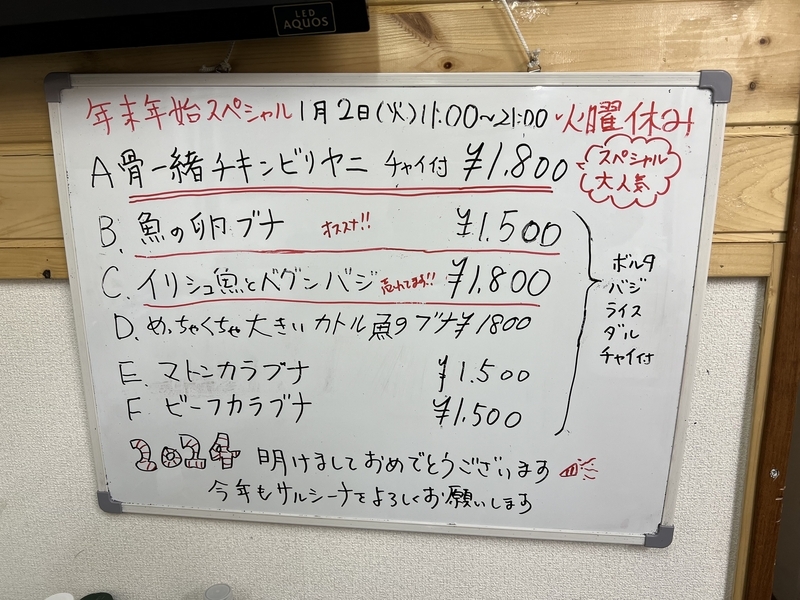 LED
AQUOS
年末年始スペシャル 1月2日(火)11:00~21:00 火曜休み
A 骨一緒チキンビリヤニ チャイ付 ¥1.800
スペシャル
大人気
B. 魚の卵ブナ オススメ!! ¥1.500
C. イリシュ魚とベグンバジ 売れてます!! ¥1.800
D. めっちゃくちゃ大きいカトル魚のブナ ¥1800
E. マトンカラブナ ¥1.500
F. ビーフカラブナ ¥1.500
ボルタ
バジ
ライス
ダル
チャイ付
2024 明けましておめでとうございます
今年もサルシーナをよろしくお願いします